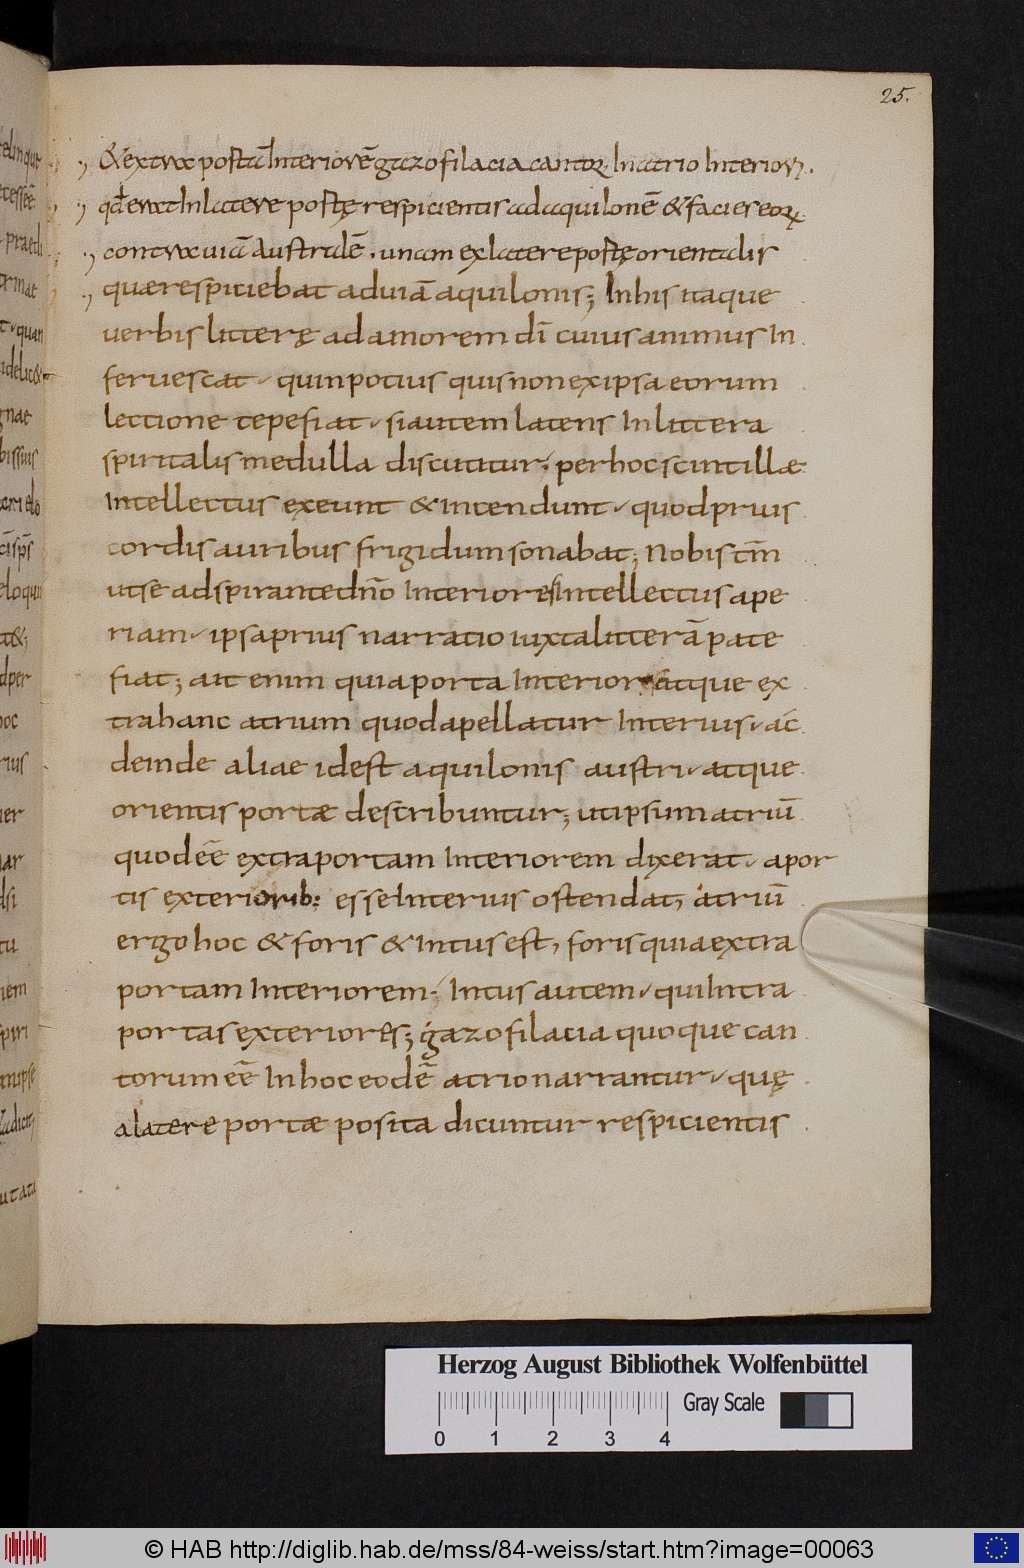 25.
& extra portā Interiorē gazofilacia cantoꝝ. In atrio Interiori.
qđ erat In latere portę respicientis ad aquilonē & facies eoꝝ
contra uiā Australē. unam ex latere portę orientalis
quae respiciebat ad uiā aquilonis; In his itaque
uerbis litterę ad amorem dī cuius animus In
feruescat quin potius quis non ex ipsa eorum
lectione tepefiat si autem latens In littera
spiritalis medulla discutitur, per hoc scintillæ
Intellectus exeunt & Intendunt quod prius
cordis auribus frigidum sonabat; Nobis tm̄
ut se adspirante dn̄o Interiores Intellectus ape
riam ipsa prius narratio iuxta litterā pate
fiat; ait enim quia porta Interior atque ex
tra hanc atrium quod apellatur Interius ac
deinde aliae id est aquilonis austri atque
orientis portæ describuntur; ut ipsum atriū
quod eē extra portam Interiorem dixerat a por
tis exteriorib: esse Interius ostendat, atriū
ergo hoc & foris & Intus est, foris quia extra
portam Interiorem, Intus autem qui Intra
portas exteriores; gazofilacia quoque can
torum eē In hoc eodē atrio narrantur quę
a latere portæ posita dicuntur respicientis
Herzog August Bibliothek Wolfenbüttel
Gray Scale
0 1 2 3 4
© HAB http://diglib.hab.de/mss/84-weiss/start.htm?image=00063